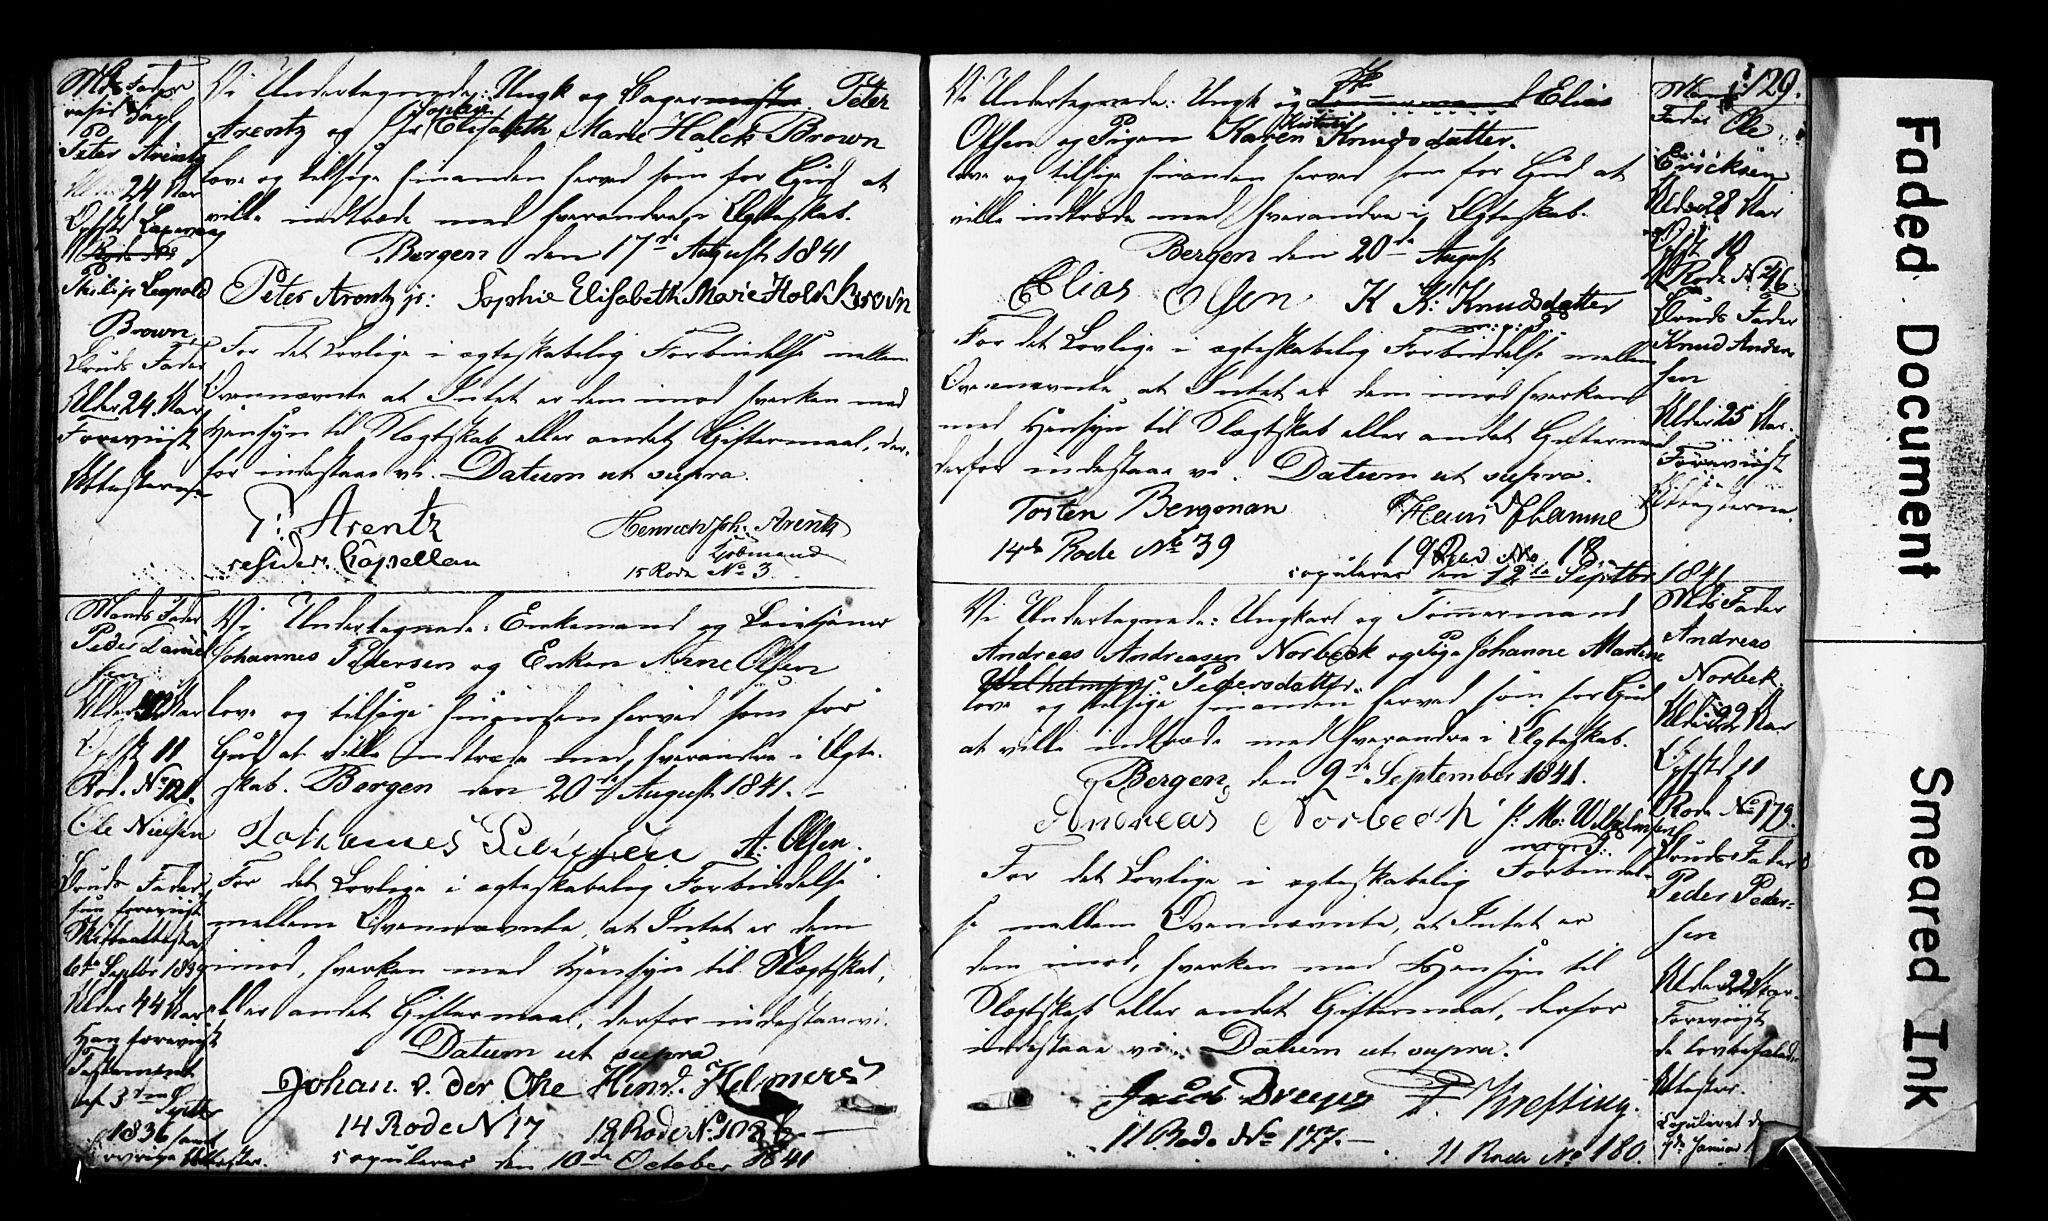 Mds Fader
resid Capl
Peter Arentz
Alder 24 Aar
Opfst
Philip Leopold
Brown
Bruds Fader
Alder 24 Aar
Foreviist
Attesterne
Vi Undertegnede: Ungk og Bager Peter
Arentz og Jfr Sophie Elisabeth Marie Halck Brown
love og tilsige hinanden herved som for Gud at
ville indtræde med hverandre i Ægteskab.
Bergen den 17de August 1841
Peter Arentz jr: Sophie Elisabeth Marie Holck Brown
For det Lovlige i ægteskabelig Forbindelse mellem
Ovennævnte at Intet er dem imod hverken med
Hensyn til Slægtskab eller andet Giftermaal, der-
for indestaae vi. Datum ut supra.
P: Arentz Henrich Joh: Arentz
resider. Capellan Kiøbmand
15 Rode No 3
Mands Fader
Peder Daniel
sen
Alder Aar
Opfst 11
Rod. No 121.
Ole Nielsen
Bruds Fader
hun foreviist
Skifteattest
6te Septbr 1839
Alder 44 Aar
Han foreviist
Testament
af 3die Septbr
1836 samt
øvrige Attester.
Vi Undertegnede: Enkemand og
Johannes Pedersen og Enken Anne Olsen
love og tilsige hinanden herved som for
Gud at ville indtræde med hverandre i Ægte-
skab. Bergen den 20de August 1841.
Johannes Pedersen A: Olsen.
For det Lovlige i ægteskabelig Forbindelse
mellem Ovennævnte, at Intet er dem
imod, hverken med Hensyn til Slægtskab,
eller andet Giftermaal, derfor indestaae vi.
Datum ut supra
Johan v. der Ohe Hinr. Helmers
14 Rode N 17 18 Rode No 108
copuleres den 10de October 1841
129.
Vi Undertegnede: Ungk og Elias
Olsen og Pigen Karen Kristine Knudsdatter.
love og tilsige hinanden herved som for Gud at
ville indtræde med hverandre i Ægteskab.
Bergen den 20de August
Elias Olsen K K: Knudsdatter
m: p: P:
For det Lovlige i ægteskabelig Forbindelse mellem
Ovennævnte at Intet er dem imod hverken
med Hensyn til Slægtskab eller andet Giftermaal
derfor indestaae vi. Datum ut supra.
Torsten Bergman Hans
14de Rode No 39 19 Rode No 18
copuleres den 12te Septbr 1841
Mands
Fader Ole
Ericksen
Alder 28 Aar
Opfst 10
Rode No 46.
Bruds Fader
Knud Ander
sen
Alder 25 Aar.
Foreviist
Attesterne.
Vi Undertegnede: Ungkarl og Tømmermand
Andreas Andreasen Norbeck og Pige Johanne Martine
Wilhelmsen Pedersdatter
love og tilsige hinanden herved som for Gud
at ville indtræde med hverandre i Ægteskab.
Bergen, den 9de September 1841.
Andreas Norbech J: M: Wilhelmsen
For det Lovlige i ægteskabelig Forbindel-
se mellem Ovennævnte, at Intet er
dem imod, hverken med Hensyn til
Slægtskab eller andet Giftermaal, derfor
indestaae vi. Datum ut supra.
Jacob Dreyer P. Krefting.
11 Rode No 177. 11 Rode No 180.
Mds Fader
Andreas
Norbek.
Alder 22 Aar
Opfst 11
Rode No 179.
Bruds Fader
Peder Peder-
sen
Alder 22 Aar.
Foreviist
de lovbefalede
Attester.
Copuleret d
7de Januar
Faded Document
Smeared Ink